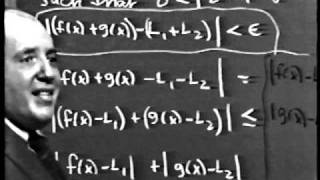 such that 0 <
|(f(x)+g(x))-(L₁+L₂)| < ε
|f(x)+g(x) -L₁-L₂| = |f(x)-L₁
|(f(x)-L₁)+(g(x)-L₂)| ≤ |g(x)-
|f(x)-L₁| + |g(x)-L₂|